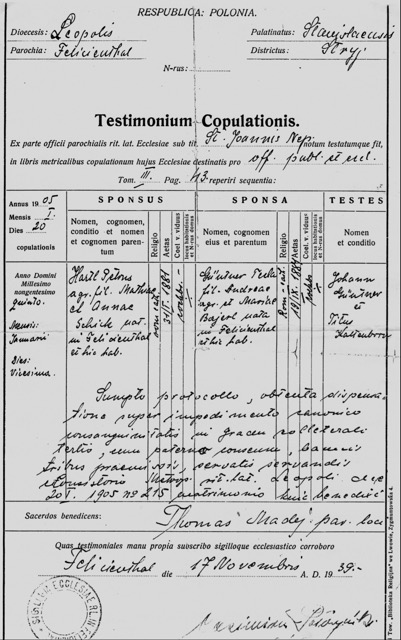 RESPUBLICA: POLONIA.
Dioecesis: Leopolis
Palatinatus: Stanislaensis
Parochia: Felicienthal
Districtus: Stryj
N-rus:
Testimonium Copulationis.
Ex parte officii parochialis rit. lat. Ecclesiae sub tit. St. Joannis Nep. notum testatumque fit,
in libris metricalibus copulationum hujus Ecclesiae destinatis pro off. publ. et eccl.
Tom. III. Pag. 113. reperiri sequentia:
Annus 19 05
Mensis I.
Dies 20
copulationis
SPONSUS
SPONSA
TESTES
Nomen, cognomen, conditio et nomen et cognomen parentum
Religio
Aetas
Coel. v. viduus
locus habitationis et N-rus domus
Nomen, cognomen ejus et parentum
Religio
Aetas
Coel. v. vidua
locus habitationis et N-rus domus
Nomen et conditio
Anno Domini
Millesimo
nongentesimo
quinto.
Mensis:
Januarii
Dies:
Vicesima.
Hartl Petrus
agr. fil. Mathiae
et Annae
Schick nat.
in Felicienthal
et hic hab.
rom. cat.
1881
coelebs
fil. Andreae
agr. et Mariae
Bajerl nata
in Felicienthal
et hic hab.
Rom. cat.
coelebs
Johann
et
Titus
Kaltenborn
Sumpto protocollo, obtenta dispensa
tione super impedimento canonico
consanguinitatis in gradu collaterali
tertio, cum paterno consensu, bannis
tribus praemissis, servatis servandis
Consistorio Metrop. rit. lat. Leopoli de
20 I. 1905 No 215 matrimonio huic benedixit
Sacerdos benedicens:
Thomas Madej par. loci
Quas testimoniales manu propia subscribo sigilloque ecclesiastico corroboro
Felicienthal die 17 Novembris A. D. 19 39.-
SIGILLUM ECCLESIAE R.L. IN FELICIENTHAL
Tow. „Biblioteka Religijna" we Lwowie, Zygmuntowska 4.